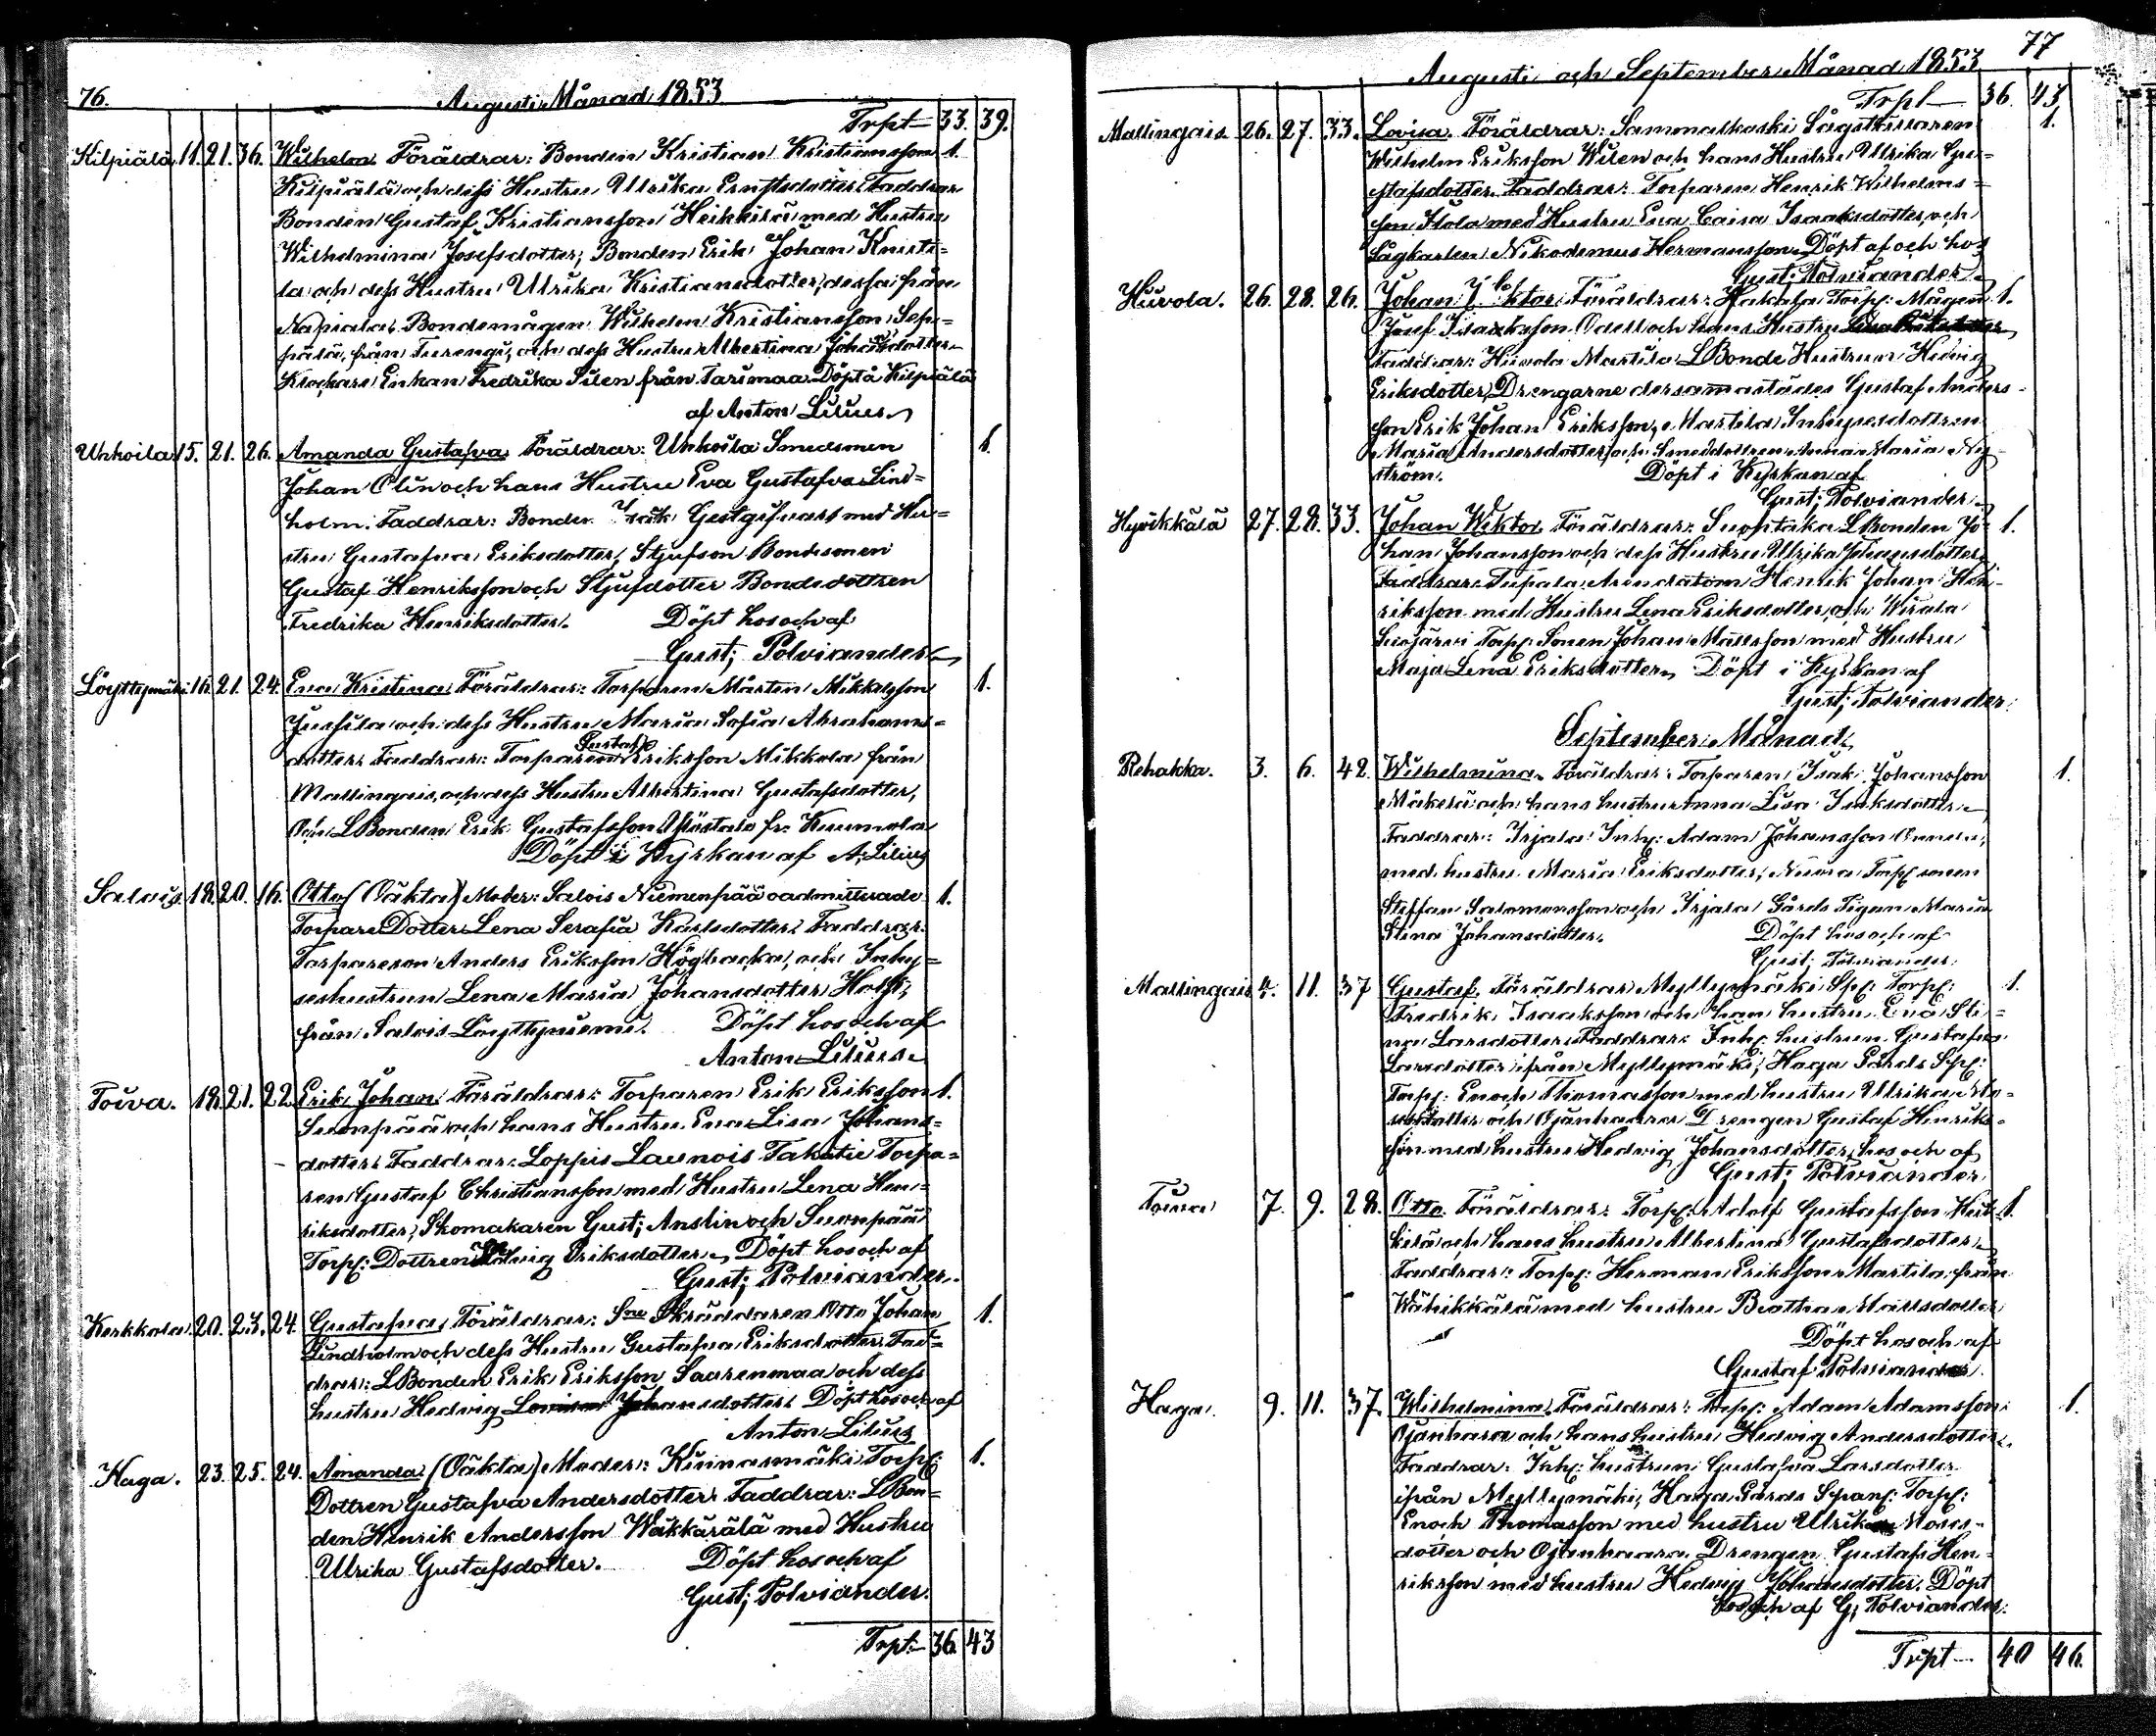 76.
Augusti Månad 1853
Trpt 33. 39.
Kilpiälä 11. 21. 36. Wilhelm Föräldrar: Bonden Kristian Kristiansson 1.
Kilpiälä och dess Hustru Ulrika Ernstsdotter. Faddrar
Bonden Gustaf Kristiansson Heikkilä med Hustru
Wilhelmina Josefsdotter; Bonden Erik Johan
la och dess Hustru Ulrika Kristiansdotter, dessa från
Napiala. Bondemågen Wilhelm Kristiansson Sep-
pälä, från Turengi, och dess Hustru Albertina Johansdotter
Enkan Fredrika Silen från Tarimaa. Döpt å Kilpiälä
af Anton Lilius
Uhkoila 15. 21. 26. Amanda Gustafva Föräldrar: Uhkoila Smedsmen 1.
Johan Olin och hans Hustru Eva Gustafva Lind-
holm. Faddrar: Bonden Isak Gestgifvars med Hu-
stru Gustafva Eriksdotter, Stjufson Bondesonen
Gustaf Henriksson och Stjufdotter Bondedottren
Fredrika Henriksdotter. Döpt hos och af
Gust; Polviander
Löyttymäki 16. 21. 24. Eva Kristina Föräldrar: Torparen Mårten Mikkelsson 1.
Jussila och dess Hustru Maria Sofia Abrahams-
dotter. Faddrar: Torparen Gustaf Eriksson Mikkola från
Mallingais, och dess Hustru Albertina Gustafsdotter,
Och LBonden Erik Gustafsson fr. Kuumola
Döpt i Kyrkan af A; Lilius
Salois 18. 20. 16. Otto (Oäkta) Moder: Salois Niemenpää oadmitterade 1.
Torpare Dotter Lena Serafia Karlsdotter. Faddrar:
Torpareson Anders Eriksson Högbacka, och Inhy-
seshustrun Lena Maria Johansdotter Holst,
från Salois Löyttyniemi. Döpt hos och af
Anton Lilius
Toiva. 18. 21. 22. Erik Johan Föräldrar: Torparen Erik Eriksson 1.
Suonpää och hans Hustru Eva Lisa Johans-
dotter. Faddrar: Loppis Launois Takatie Torpa-
ren Gustaf Christiansson med Hustru Lena Hen-
riksdotter, Skomakaren Gust; Anslin och Suonpää
Torp: Dottren Hedvig Eriksdotter, Döpt hos och af
Gust; Polviander.
Kerkkola 20. 23. 24. Gustafva, Föräldrar: Sne Skräddaren Otto Johan 1.
Lindholm och dess Hustru Gustafva Eriksdotter. Fad-
drar: LBonden Erik Eriksson Saarenmaa och dess
hustru Hedvig Johansdotter. Döpt hos och af
Anton Lilius
Haga. 23. 25. 24. Amanda (Oäkta) Moder: Kiinasmäki Torp: 1.
Dottren Gustafva Andersdotter. Faddrar: LBon-
den Henrik Andersson Wäkkärälä med Hustru
Ulrika Gustafsdotter. Döpt hos och af
Gust; Polviander.
Trpt 36. 43
77
Augusti och September Månad 1853
Trpt 36. 43.
Mallingais 26. 27. 33. Lovisa. Föräldrar: Sammalkoski Sågställaren 1.
Wilhelm Eriksson Wilen och hans Hustru Ulrika Gu-
stafsdotter. Faddrar: Torparen Henrik Wilhelms-
son Ilola med Hustru Eva Caisa Isaaksdotter, och
Sågkarlen Nikodemus Hermansson. Döpt af och hos
Gust; Polviander
Hiivola. 26. 28. 26. Johan Viktor. Föräldrar: Hakala Torp: Mågen 1.
Josef Isaaksson Odell och hans Hustru
Faddrar: Hiivola Martila LBonde Hustrun Hedvig
Eriksdotter, Drengarne dersammastädes Gustaf Anders-
son Erik Johan Eriksson, Martila Inhysesdottren
Maria Andersdotter och Smeddottren Anna Maria Ny-
ström. Döpt i Kyrkan af
Gust; Polviander.
Hyvikkälä 27. 28. 33. Johan Wiktor. Föräldrar: LBonden Jo- 1.
han Johansson och dess Hustru Ulrika Johansdotter
Faddrar: Arendatorn Henrik Johan Hen-
riksson med Hustru Lena Eriksdotter, och Wirala
Suojärvi Torp: Sonen Johan Mattsson med Hustru
Maja Lena Eriksdotter. Döpt i Kyrkan af
Gust; Polviander.
September Månad
Rehakka. 3. 6. 42. Wilhelmina. Föräldrar: Torparen Isak Johansson 1.
Mäkelä och hans hustru Anna Lisa Isaksdotter
Faddrar: Irjala Inhy: Adam Johansson
med hustru Maria Eriksdotter, Torp: sonen
Steffan Salomonsson och Irjala Gårds Pigan Maria
Stina Johansdotter. Döpt hos och af
Gust; Polviander
Mallingais 4. 11. 37 Gustaf. Föräldrar Myllymäki Sp: Torp: 1.
Fredrik Isaaksson och hans hustru Eva Sti-
na Larsdotter. Faddrar: Inhy: hustrun Gustafva
Larsdotter ifrån Myllymäki, Haga Gårds Sp:
Torp: Enoch Thomasson med hustru Ulrika Mo-
sesdotter och Ojanhaara Drengen Gustaf Henriks-
son med hustru Hedvig Johansdotter, hos och af
Gust; Polviander
Toiva 7. 9. 28. Otto. Föräldrar: Torp: Adolf Gustafsson Heik- 1.
kilä och hans hustru Albertina Gustafsdotter.
Faddrar: Torp: Herman Eriksson Martila från
Wähikkälä med hustru Beatha Mattsdotter
Döpt hos och af
Gustaf Polviander.
Haga. 9. 11. 37. Wilhelmina. Föräldrar: Torp: Adam Adamsson 1.
Ojanhaara och hans hustru Hedvig Andersdotter.
Faddrar: Inhy: hustrun Gustafva Larsdotter
ifrån Myllymäki, Haga Gårds Spanf: Torp:
Enoch Thomasson med hustru Ulrika Moses-
dotter och Ojanhaara Drengen Gustaf Hen-
riksson med hustru Hedvig Johansdotter. Döpt
hos och af G; Polviander.
Trpt 40 46.